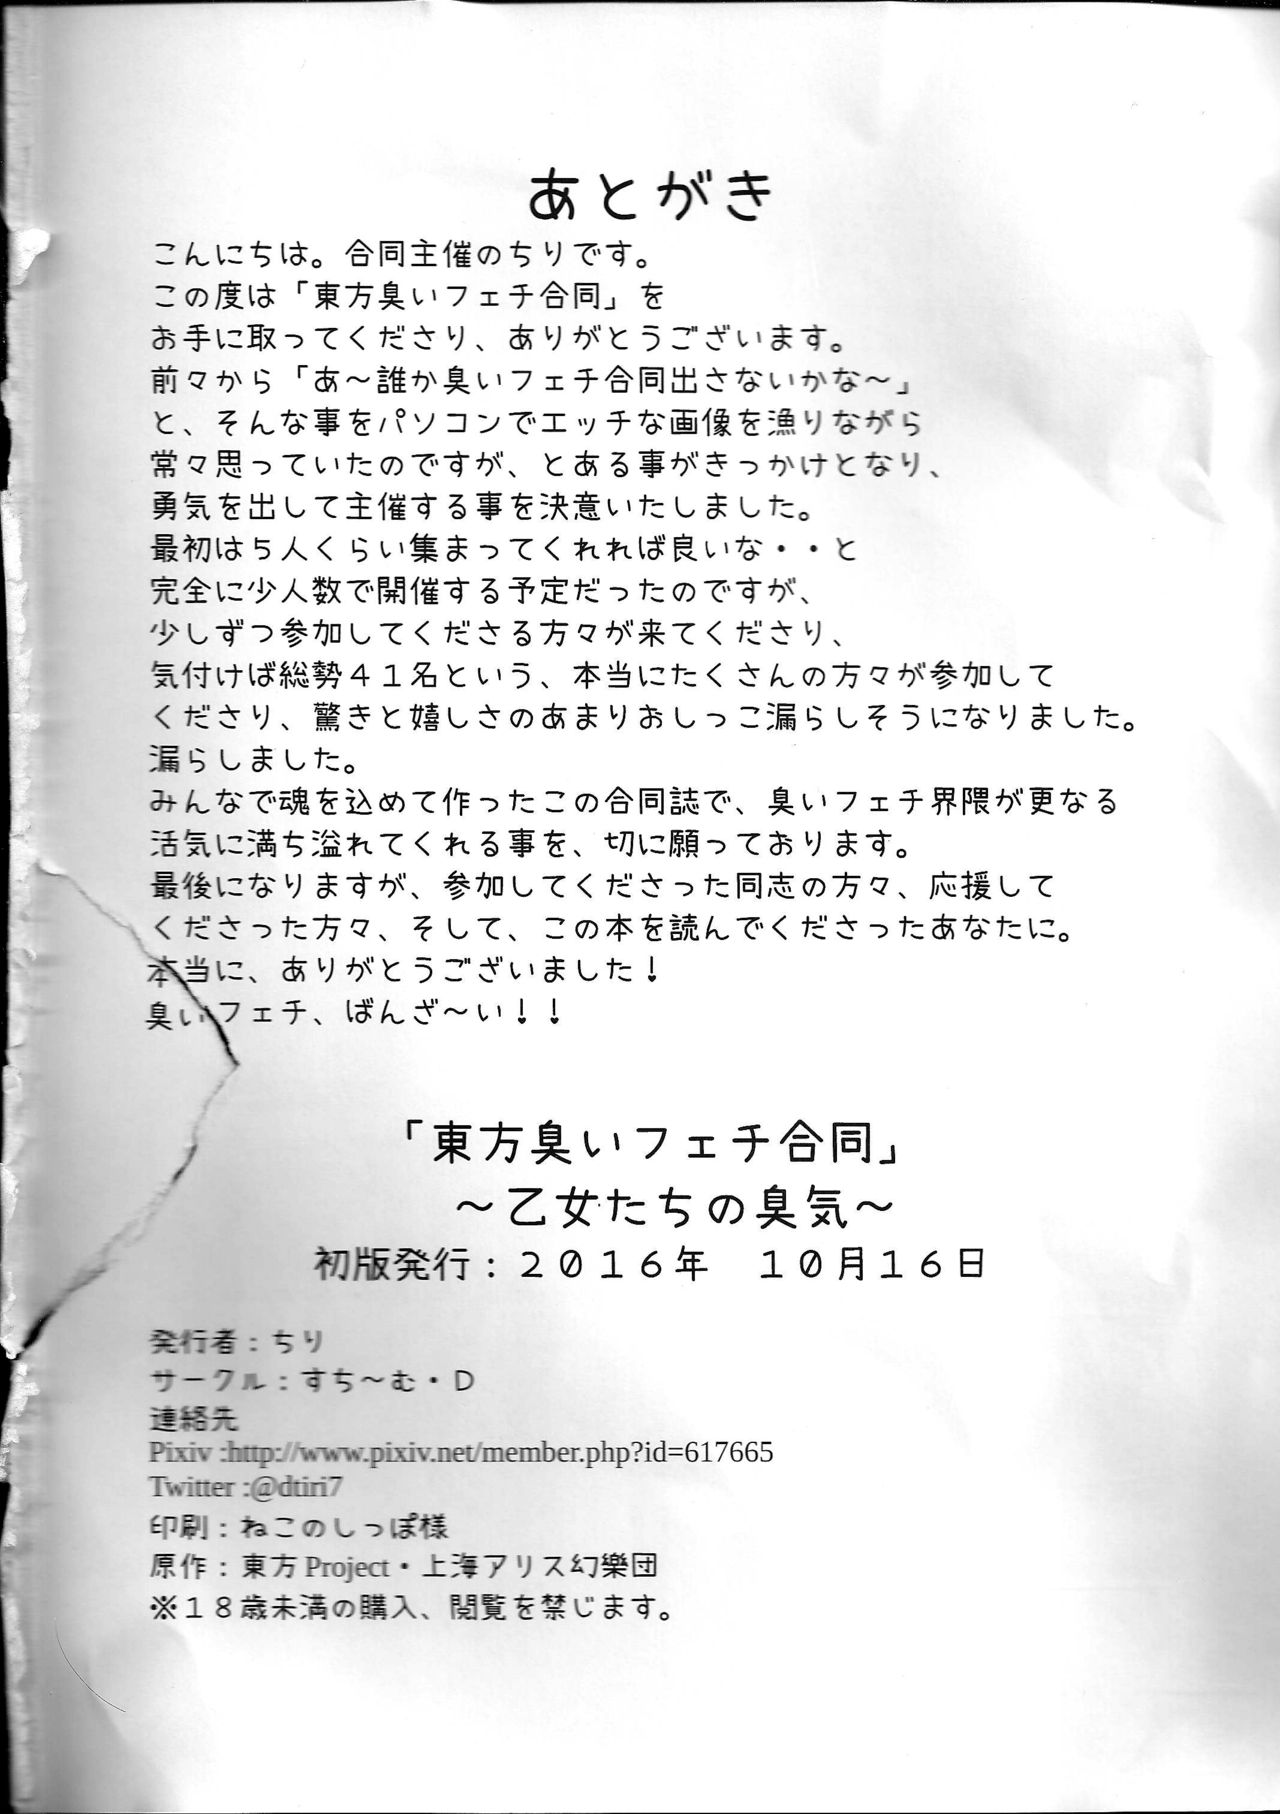 あとがき
こんにちは。合同主催のちりです。
この度は「東方臭いフェチ合同」を
お手に取ってくださり、ありがとうございます。
前々から「あ～誰か臭いフェチ合同出さないかな～」
と、そんな事をパソコンでエッチな画像を漁りながら
常々思っていたのですが、とある事がきっかけとなり、
勇気を出して主催する事を決意いたしました。
最初は５人くらい集まってくれれば良いな・・と
完全に少人数で開催する予定だったのですが、
少しずつ参加してくださる方々が来てくださり、
気付けば総勢４１名という、本当にたくさんの方々が参加して
くださり、驚きと嬉しさのあまりおしっこ漏らしそうになりました。
漏らしました。
みんなで魂を込めて作ったこの合同誌で、臭いフェチ界隈が更なる
活気に満ち溢れてくれる事を、切に願っております。
最後になりますが、参加してくださった同志の方々、応援して
くださった方々、そして、この本を読んでくださったあなたに。
本当に、ありがとうございました！
臭いフェチ、ばんざ～い！！
「東方臭いフェチ合同」
～乙女たちの臭気～
初版発行：２０１６年　１０月１６日
発行者：ちり
サークル：すち～む・Ｄ
連絡先
Pixiv :http://www.pixiv.net/member.php?id=617665
Twitter :@dtiri7
印刷：ねこのしっぽ様
原作：東方 Project・上海アリス幻樂団
※１８歳未満の購入、閲覧を禁じます。